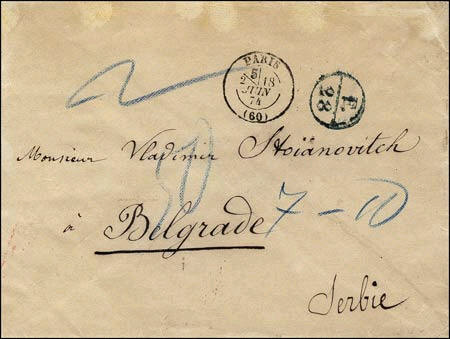 PARIS
5
2 18
JUIN
74
(60)
F.
28
Monsieur Vladimir Stoïanovitch
50
à Belgrade 7-10
Serbie